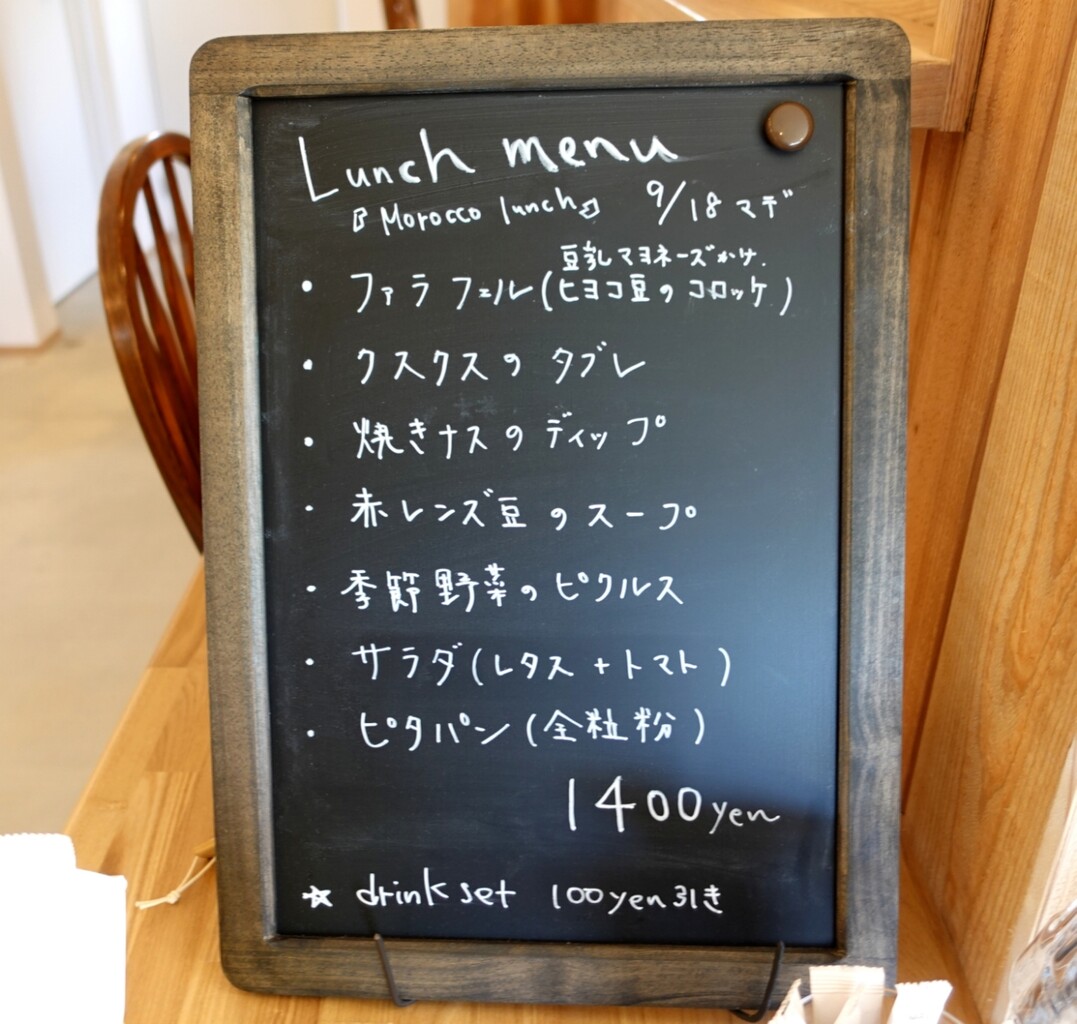 Lunch menu
『Morocco lunch』 9/18 マデ
豆乳マヨネーズかけ.
・ファラフェル(ヒヨコ豆のコロッケ)
・クスクスのタブレ
・焼きナスのディップ
・赤レンズ豆のスープ
・季節野菜のピクルス
・サラダ(レタス+トマト)
・ピタパン(全粒粉)
1400yen
☆ drink set 100yen引き